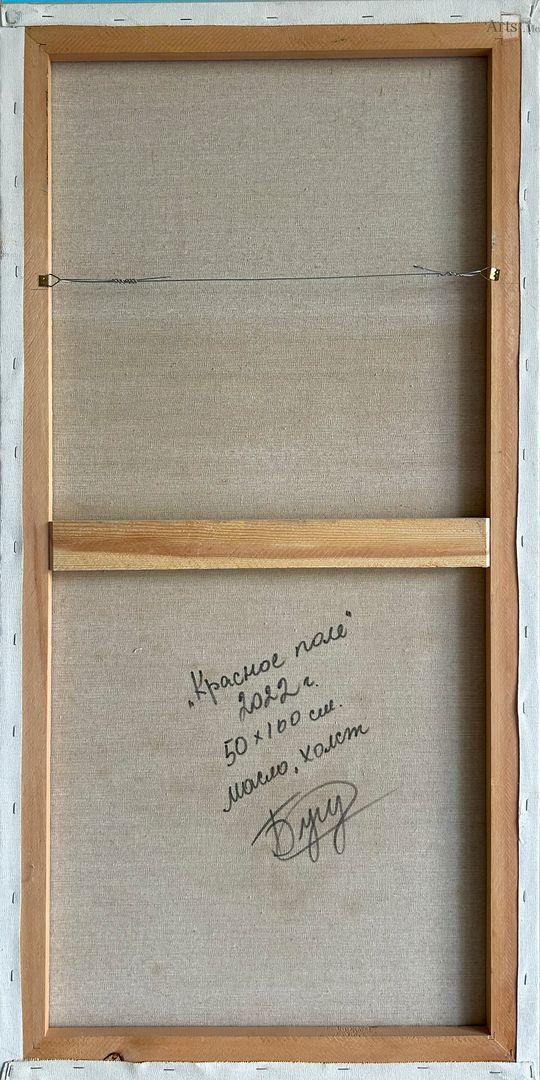 Arts
„Красное поле"
2022 г.
50 x 100 см.
масло, холст